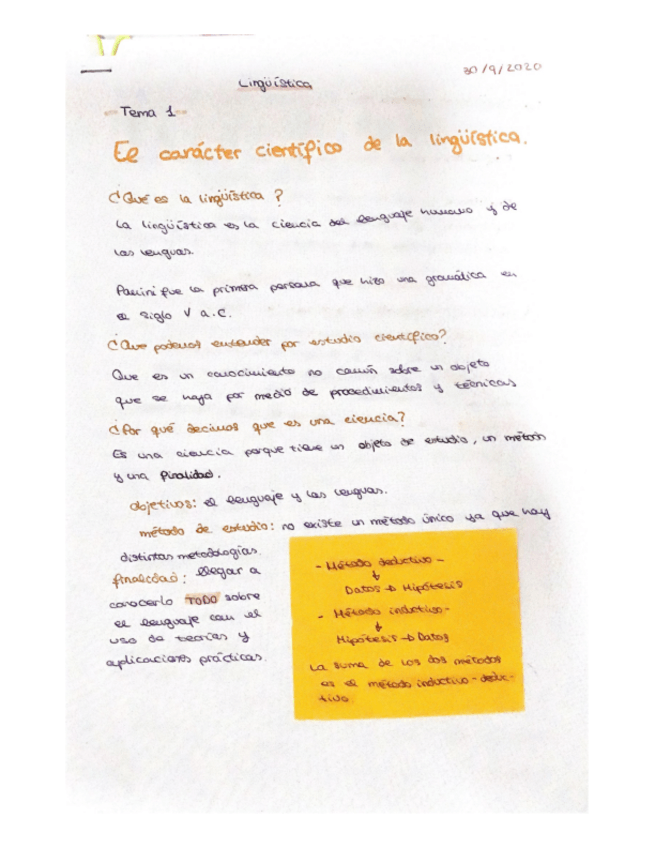 30/9/2020
Lingüística
- Tema 1 -
El carácter científico de la lingüística.
¿Qué es la lingüística?
La lingüística es la ciencia del lenguaje humano y de
las lenguas.
Panini fue la primera persona que hizo una gramática en
el siglo V a.C.
¿Que podemos entender por estudio científico?
Que es un conocimiento no común sobre un objeto
que se haya por medio de procedimientos y técnicas
¿Por qué decimos que es una ciencia?
Es una ciencia porque tiene un objeto de estudio, un método
y una finalidad.
objetivos: el lenguaje y las lenguas.
método de estudio: no existe un método único ya que hay
distintas metodologías.
finalidad: llegar a
conocerlo TODO sobre
el lenguaje con el
uso de teorías y
aplicaciones prácticas.
- Método deductivo -
↓
Datos → Hipótesis
- Método inductivo -
↓
Hipótesis → Datos
La suma de los dos métodos
es el método inductivo-deduc-
tivo.